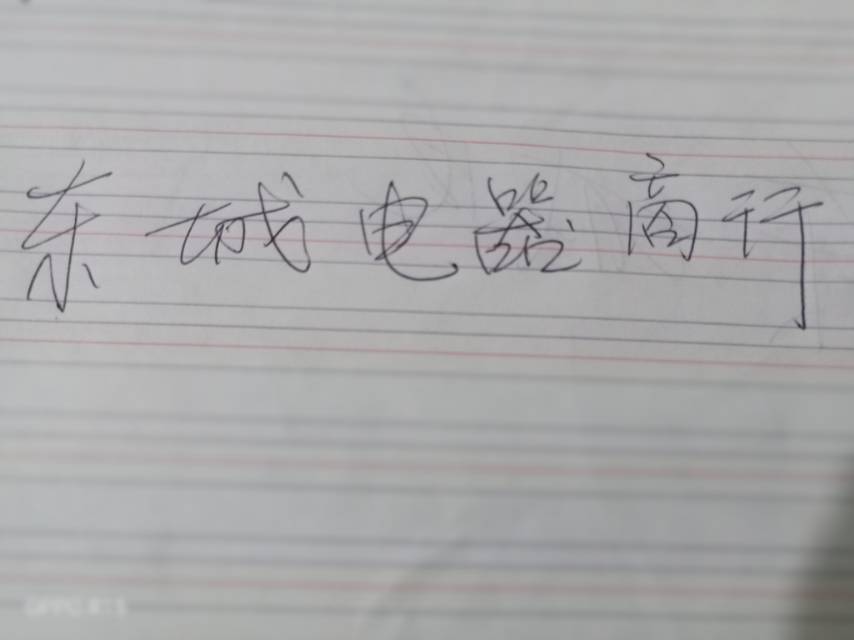 东城电器商行